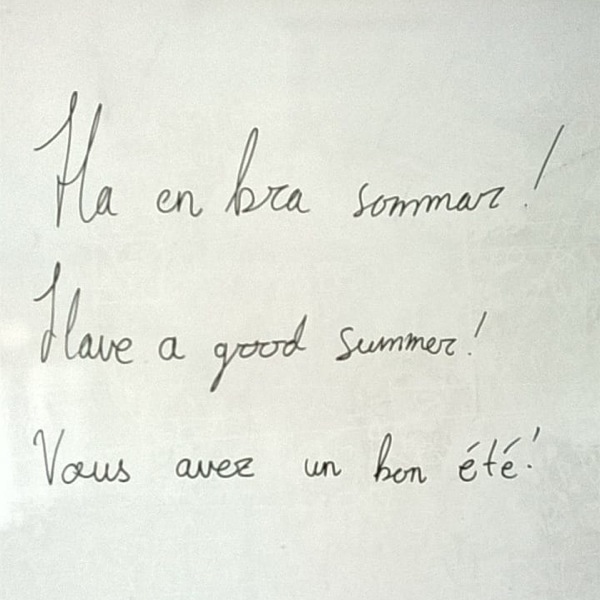 Ha en bra sommar!
Have a good summer!
Vous avez un bon été!